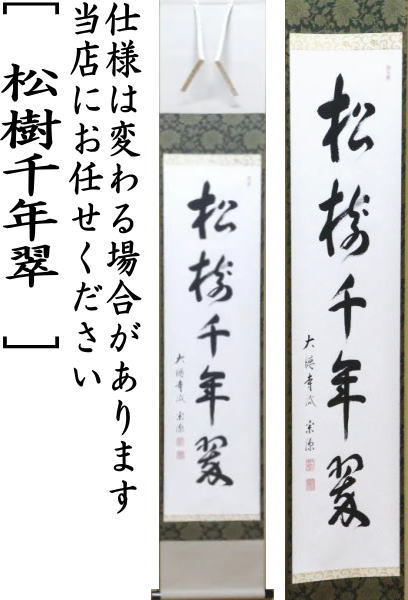 仕様は変わる場合があります
当店にお任せください
[ 松樹千年翠 ]
松樹千年翠
大徳寺派 宗源
松樹千年翠
大徳寺派 宗源